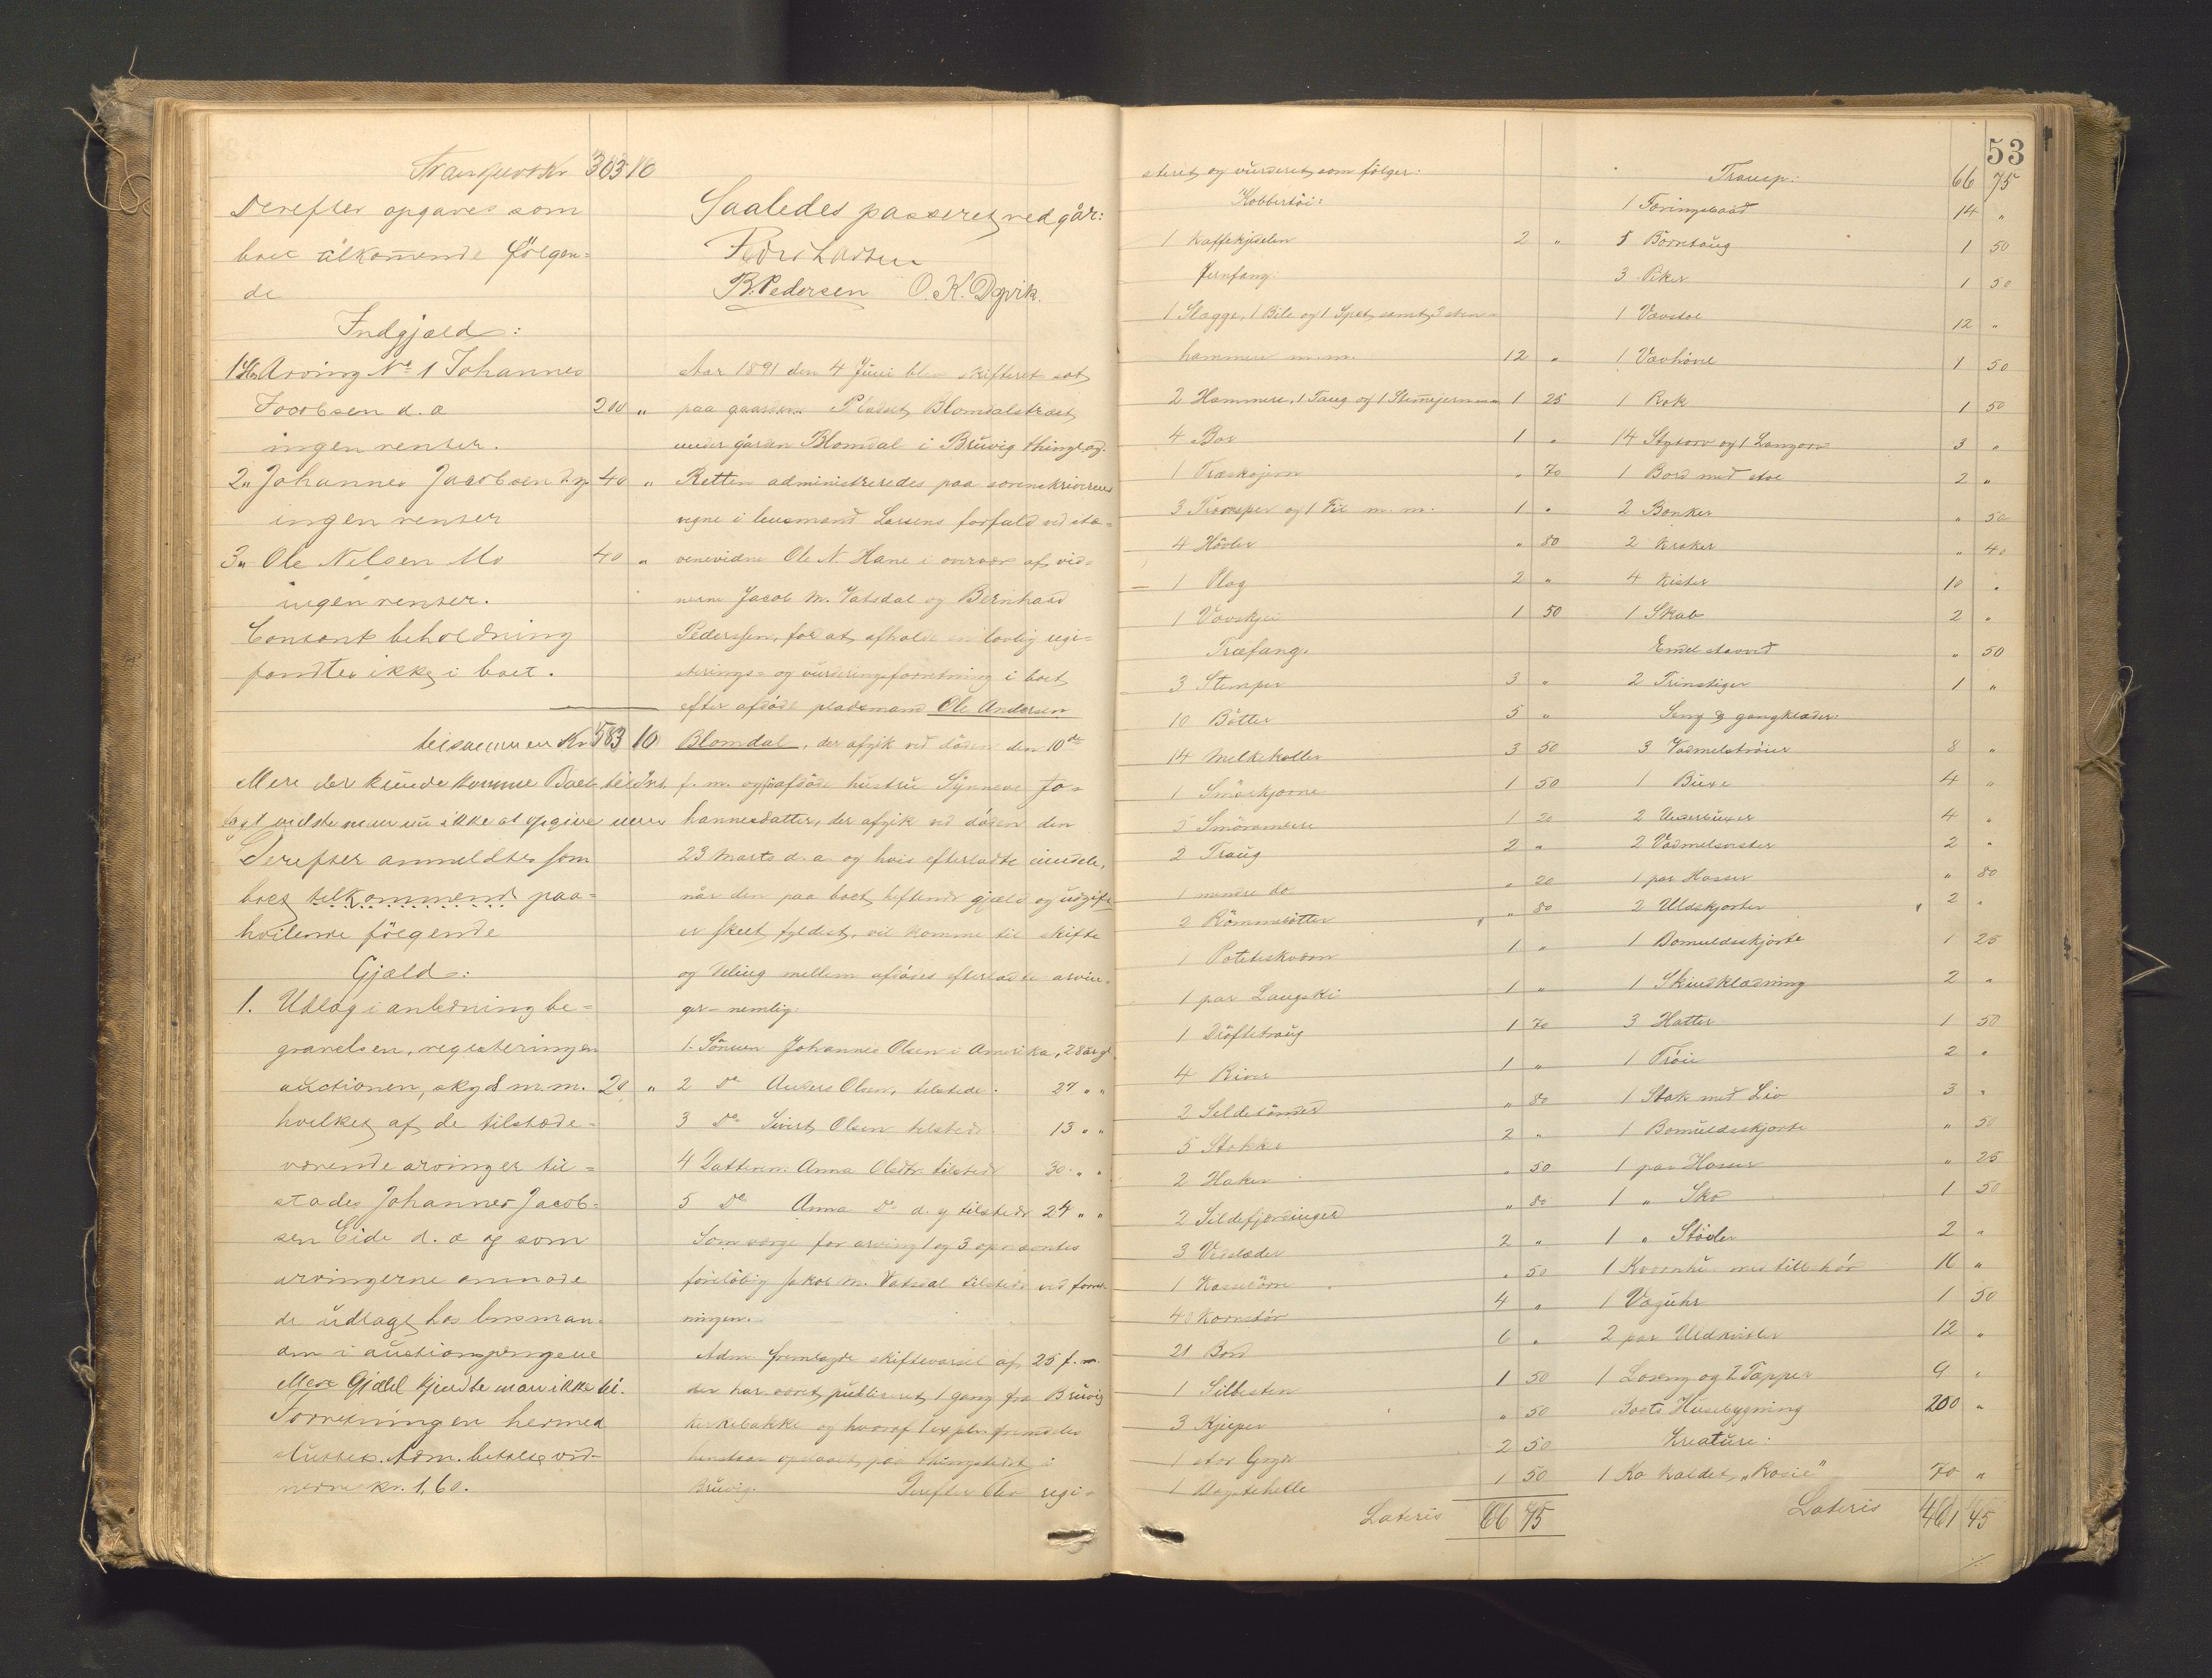 Transport Kr 303 10
Derefter opgaves som
boet tilkommende følgen=
de
Indgjæld:
1. Arving No 1 Johannes
Jacobsen d. æ 200 "
ingen renter.
2. Johannes Jacobsen d. y 40 "
ingen renter
3. Ole Nilsen Mo 40 "
ingen renter.
Contant beholdning
fandtes ikke i boet.
tilsammen Kr 583 10
Mere der kunde komme Boet til Ind.
tægt vidste man nu ikke at opgive
Derefter anmeldtes som
boet tilkommend paa=
hvilende følgende
Gjæld:
1. Udlæg i anledning be=
gravelsen, registeringen
auctionen, skyds m.m. 20 "
hvilket af de tilstede=
værende arvinger til=
stodes Johannes Jacob=
sen Eide d. æ og som
arvingerne anmode
de udlagt hos lensman=
den i auctionspengene
Mere Gjæld kjendte man ikke til.
Forretningen hermed
sluttes. Adm. betalte vid-
nerne kr. 1,60.
Saaledes passeret vedgår:
B. Pedersen O. K. Dyvik.
Aar 1891 den 4 Juni blev skifteret sat
paa gaardens Pladset Blomdalstræet
under gården Blomdal i Bruvig thinglag.
Retten administreredes paa sorenskriverens
vegne i lensmand Larsens forfald ved stæ=
venevidne Ole N. Hane i overvær af vid=
nerne Jacob M. Vatsdal og Bernhard
Pederssen, for at afholde en lovlig regi=
strerings= og vurderingsforretning i boet
efter afdøde pladsmand Ole Andersen
Blomdal, der afgik ved døden den 10de
f. m. og afdøde hustru Synneve Jo=
hannesdatter, der afgik ved døden den
23 Marts d. a. og hvis efterladte eiendele,
når den paa boet heftende gjæld og udgifter
er skeet fyldest, vil komme til skifte
og deling mellem afdødes efterladte arvin=
ger - nemlig:
1. Sønnen Johannes Olsen i Amerika, 28 år gl
2 Do Anders Olsen, tilstede. 27 " "
3 Do Sivert Olsen tilstede 13 " "
4 Datteren Anna Olsdtr. tilstede 30 " "
5 Do Anna Do d. y tilstede 24 " "
Som værge for arving 1 og 3 opnævntes
foreløbig Jakob M. Vatsdal tilstede ved forret=
ningen.
Adm. fremlagde skiftevarsel af 25 f. m.
der har været publiseret 1 gang fra Bruvig
kirkebakke og hvoraf 1 expl. fremdeles
henstaar opslaaet paa thingstedet i
Bruvig. Derefter blev regi=
53
steret og vurderet som følger:
Kobbertøi:
1 Kaffekjedelen 2 "
Jernfang:
1 Slægge, 1 Bile og 1 Spet samt 3 sten=
hammere m.m. 12 "
2 Hammere, 1 Tang og 1 Stemmejern m.m 1 25
4 Bor 1 "
1 Træskojern " 70
3 Træraspen og 1 Fil m. m. 1 "
4 Høvler " 80
1 Plog 2 "
1 Vævskjei 1 50
Træfang.
3 Stamper 3 "
10 Bøtter 5 "
14 Melkekoller 3 50
1 Smørkjerne 1 50
5 Smørambere 1 20
2 Traug 2 "
1 mindre do " 20
2 Rømmebøtter " 80
1 Poteteskværn 1 "
1 par Langski 1 "
1 Drøftetraug 1 70
4 River 1 "
2 Sildetønder " 80
5 Stokke 2 "
2 Haker " 50
2 Sildefjerdinger " 80
3 Vedslæder 2 "
1 Kassebørre " 50
40 Kornstør 4 "
21 Bord 6 "
1 Silbesten 1 50
3 Kjieper " 50
1 stor Gryde 2 50
1 Bagstehelle 1 50
Lateris 66 75
Transp: 66 75
1 Færingsbaad 14 "
5 Børretaug 1 50
3 Piker 1 50
1 Vævstol 12 "
1 Vævhovel 1 50
1 Rok 1 50
14 Stykorv og 1 Langorv 3 "
1 Bord med stol 2 "
2 Bænker " 50
2 Krakker " 40
4 Kister 10 "
1 Skab 2 "
Endel stavved " 50
2 Trinstiger 1 "
Seng & gangklæder:
3 Vadmelstrøier 8 "
1 Buxe 4 "
2 Underbuxer 4 "
2 Vadmelsvester 2 "
1 par Hosser " 80
2 Uldskjorter 2 "
1 Bomuldsskjorte 1 25
1 Skindklædning 2 "
3 Hatter 1 50
1 Trøie 2 "
1 Stak med Liv 3 "
1 Bomuldsskjorte " 50
1 par Hosser " 25
1 " Sko 1 50
1 " Støvler 2 "
1 Kvernhus med tilbehør 16 "
1 Væguhr 1 50
2 par Uldkarder 12 "
1 Loseng og 2 Tæpper 9 "
Boets Husebygning 200 "
Kreature:
1 Ko kaldet "Rosie" 70 "
Lateris 461 45